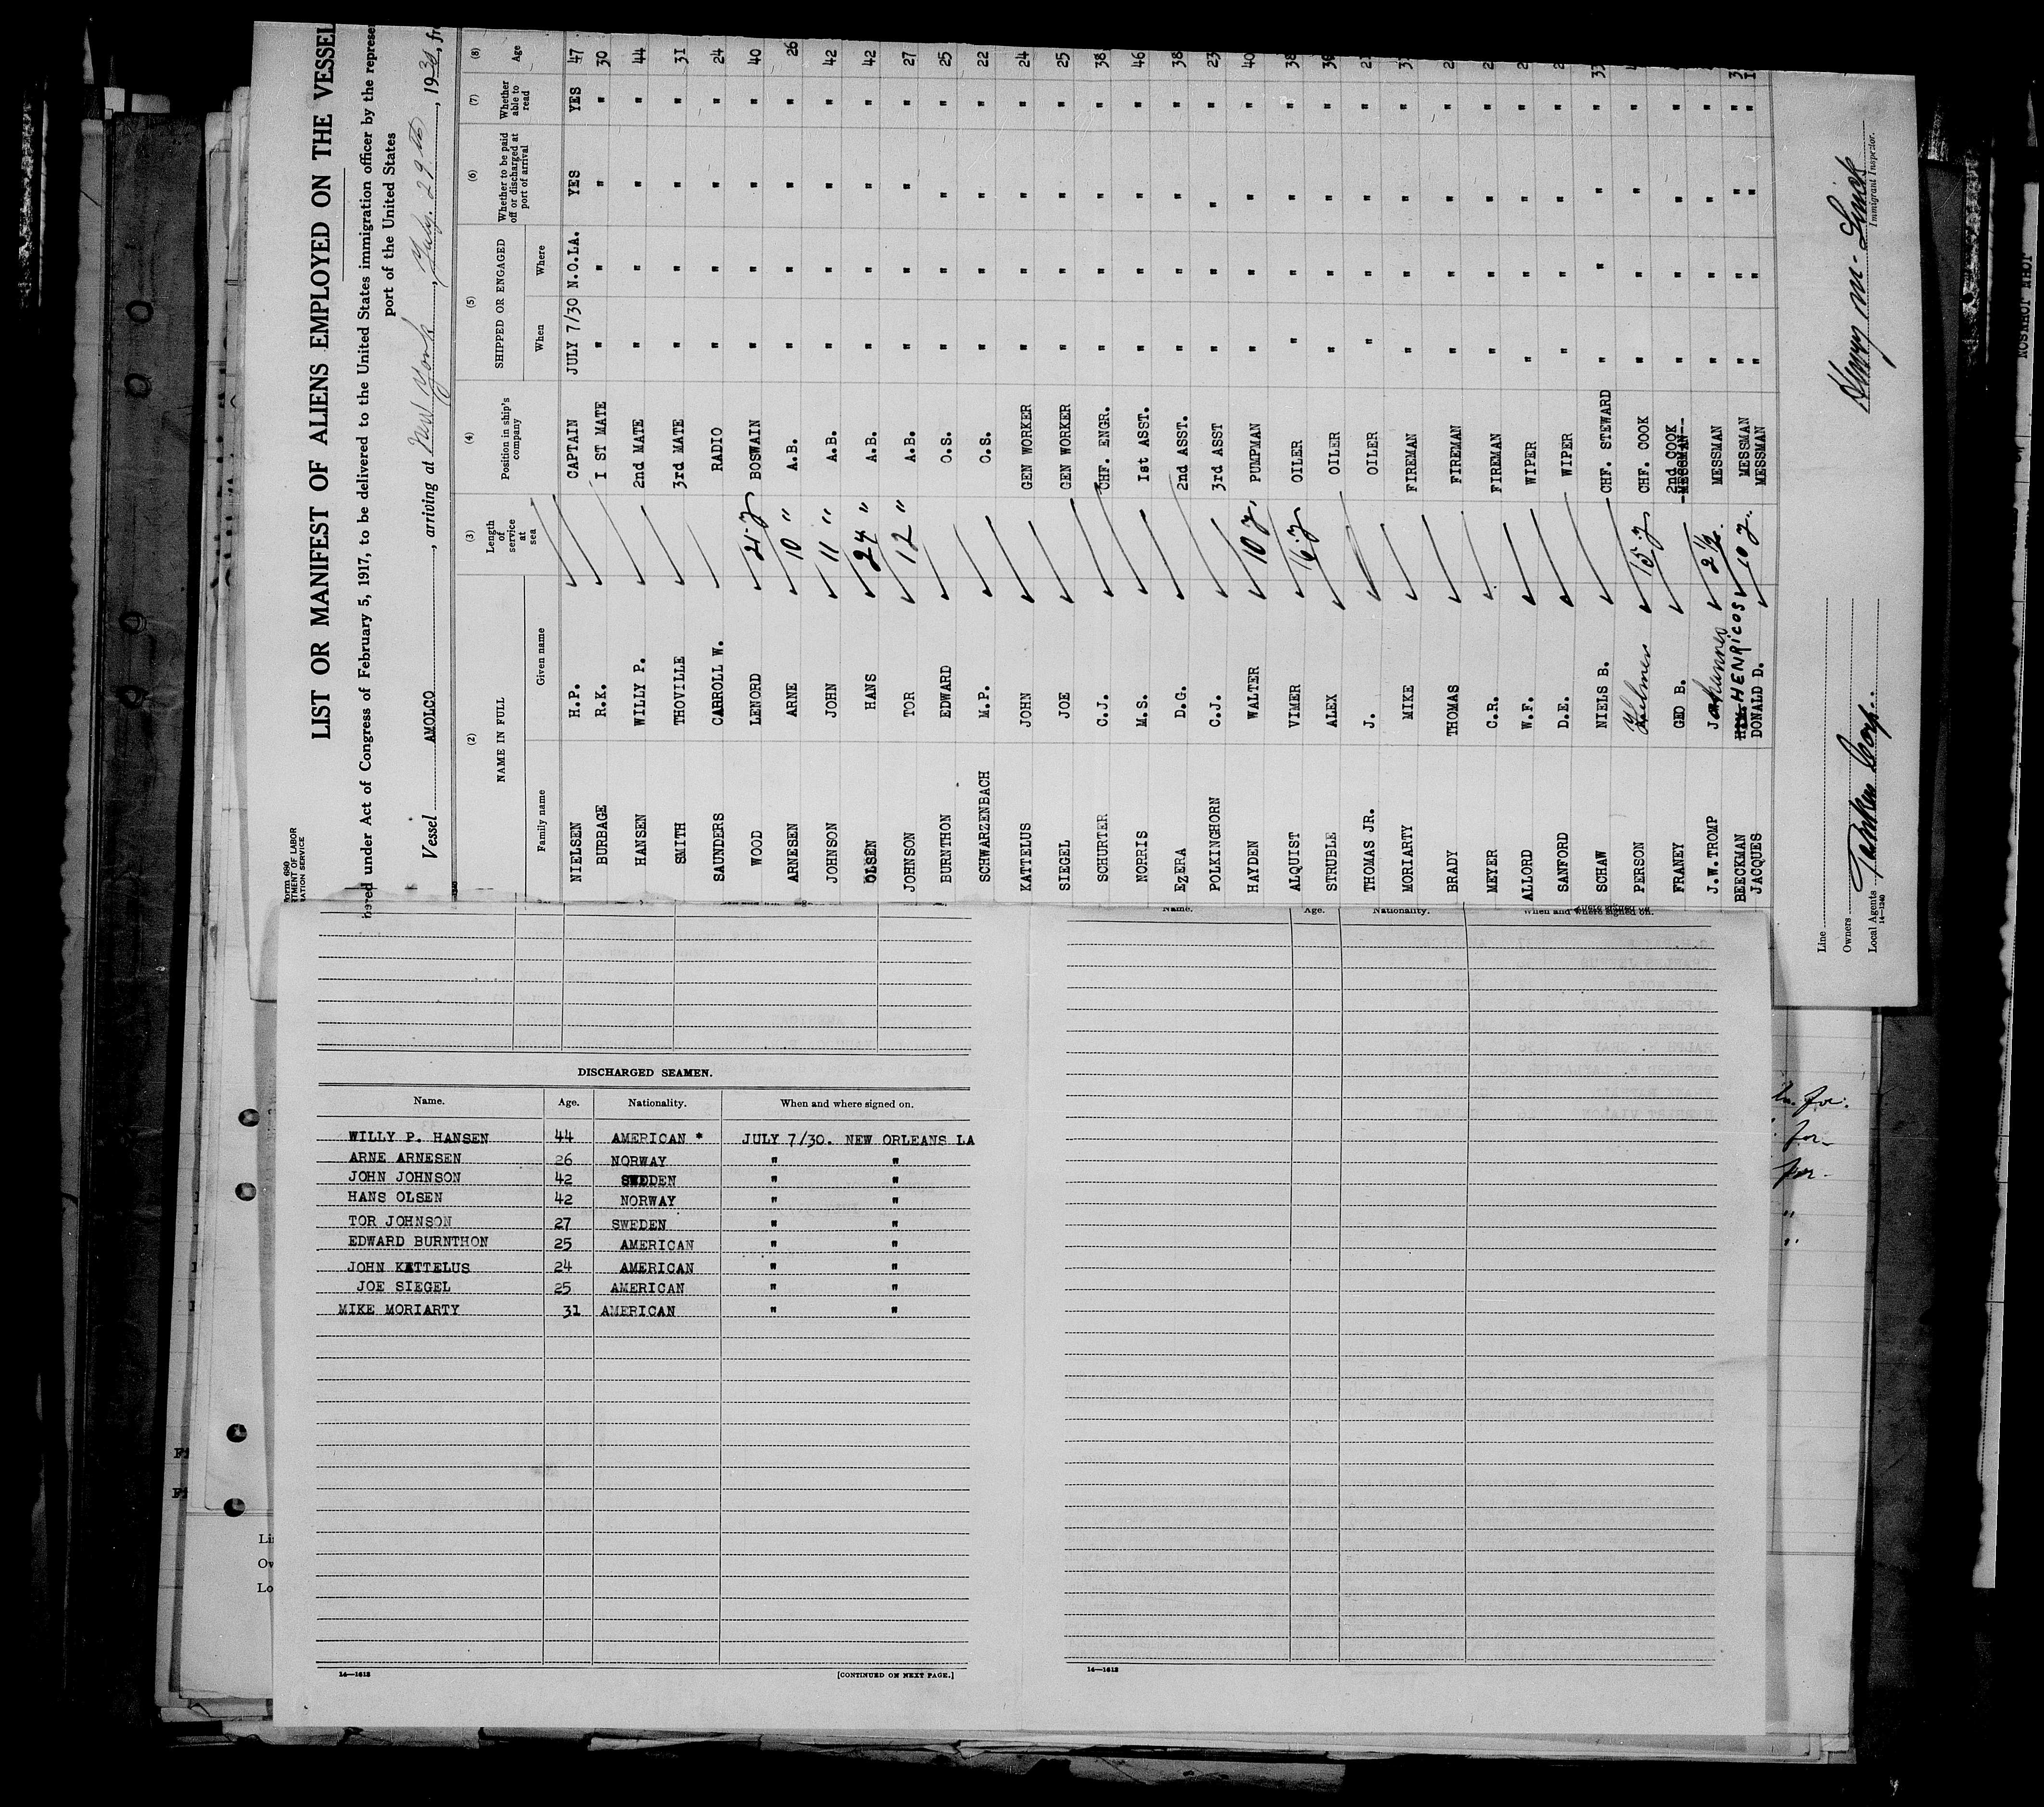 LIST OR MANIFEST OF ALIENS EMPLOYED ON THE VESSEL
under Act of Congress of February 5, 1917, to be delivered to the United States immigration officer by the
port of the United States
Vessel AMOLCO, arriving at New York, July. 29th, 1930, fr
(2) (3) (4) (5) (6) (7) (8)
NAME IN FULL Length of service at sea Position in ship's company SHIPPED OR ENGAGED Whether to be paid off or discharged at port of arrival Whether able to read Age
Family name Given name When Where
NIELSEN H.P. CAPTAIN JULY 7/30 N.O.LA. YES YES 47
BURBAGE R.K. I ST MATE " " " " 30
HANSEN WILY P. 2nd MATE " " " " 44
SMITH THOVILE 3rd MATE " " " " 31
SAUNDERS CARROLL W. RADIO " " " " 24
WOOD LENORD 21 y BOSWAIN " " " " 40
ARNESEN ARNE 10 " A.B. " " " " 26
JOHNSON JOHN 11 " A.B. " " " " 42
OLSEN HANS 24 " A.B. " " " " 42
JOHNSON TOR 12 " A.B. " " " " 27
BURNTHON EDWARD O.S. " " " " 25
SCHWARZENBACH M.P. O.S. " " " " 22
KATTELUS JOHN GEN WORKER " " " " 24
SIEGEL JOE GEN WORKER " " " " 25
SCHURTER C.J. CHF. ENGR. " " " " 38
NORRIS M.S. Ist ASST. " " " " 46
EZERA D.G. 2nd ASST. " " " " 38
POLKINGHORN C.J. 3rd ASST " " " " 23
HAYDEN WALTER 10 y PUMPMAN " " " " 40
ALQUIST VIMER 16 y OILER " " " " 38
STRUBLE ALEX OILER " " " "
THOMAS JR. J. OILER " " " "
MORIARTY MIKE FIREMAN " " " "
BRADY THOMAS FIREMAN " " " "
MEYER C.R. FIREMAN " " " "
ALLORD W.F. WIPER " " " "
SANFORD D.E. WIPER " " " "
SCHAW NIELS B. CHF. STEWARD " " " "
PERSON 15 y CHF. COOK " " " "
FRANEY GEO B. 2nd COOK MESSMAN " " " "
J.W.TROMP Johannes 2 1/2 MESSMAN " " " "
BEECKMAN HENRICOS 10 y. MESSMAN " " " "
JACQUES DONALD D. MESSMAN " " " "
Line
Owners
Local Agents
14—1240
Immigrant Inspector.
DISCHARGED SEAMEN.
Name. Age. Nationality. When and where signed on.
WILLY P. HANSEN 44 AMERICAN * JULY 7/30. NEW ORLEANS LA
ARNE ARNESEN 26 NORWAY " "
JOHN JOHNSON 42 SWEDEN " "
HANS OLSEN 42 NORWAY " "
TOR JOHNSON 27 SWEDEN " "
EDWARD BURNTHON 25 AMERICAN " "
JOHN KATTELUS 24 AMERICAN " "
JOE SIEGEL 25 AMERICAN " "
MIKE MORIARTY 31 AMERICAN " "
14—1613
[CONTINUED ON NEXT PAGE.]
Name. Age. Nationality. When and where signed on.
14—1613